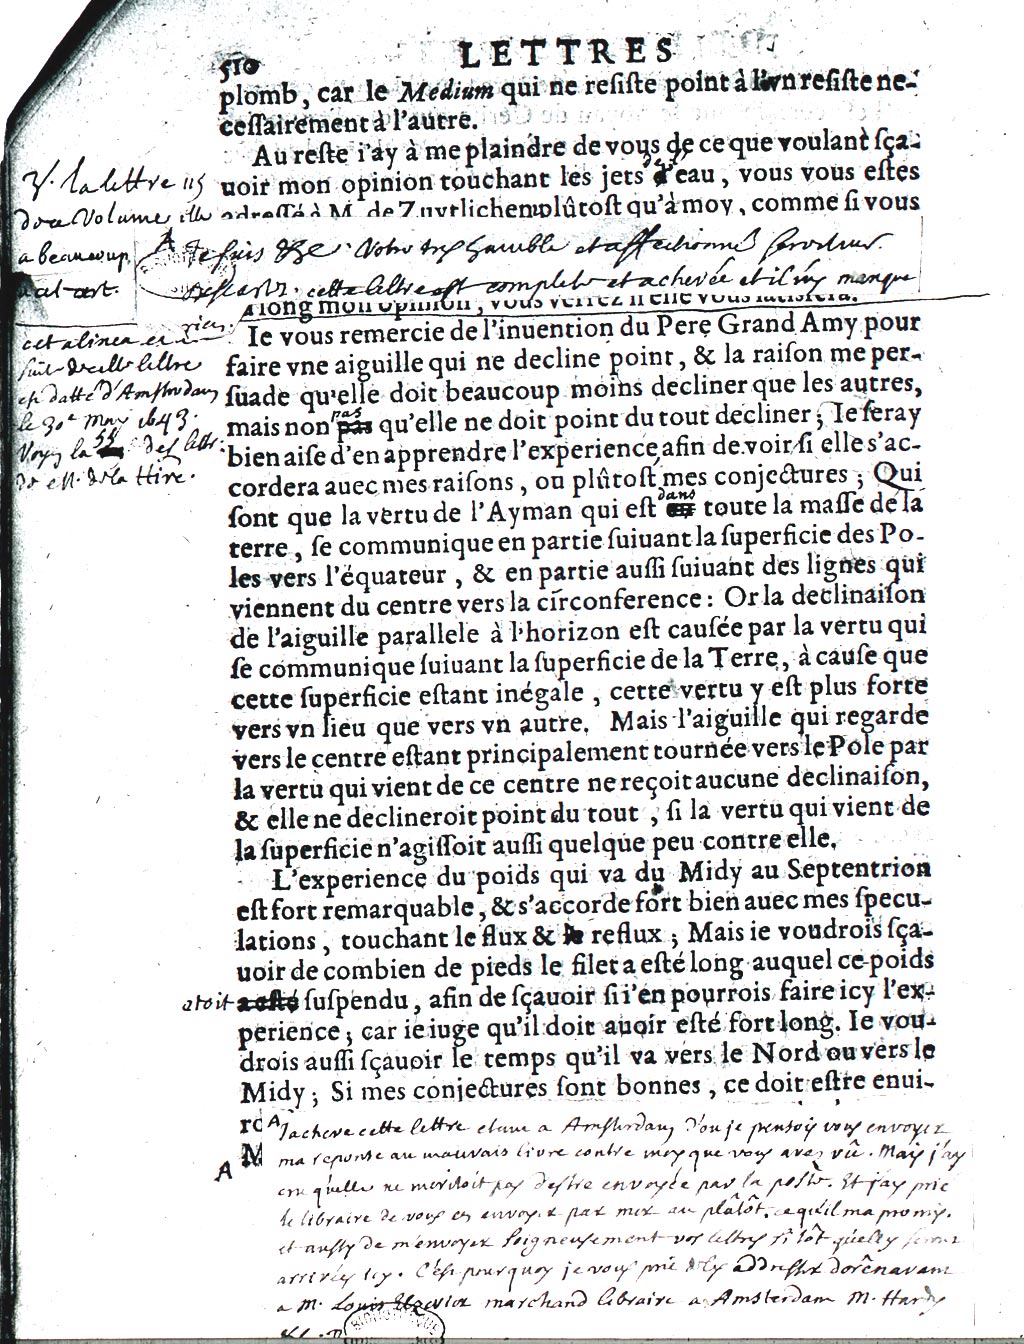 510 LETTRES
plomb, car le Medium qui ne resiste point à l'vn resiste ne-
cessairement à l'autre.
Au reste i'ay à me plaindre de vous de ce que voulant sça-
uoir mon opinion touchant les jets d'eau, vous vous estes
adressé à M. de Zuytlichem plûtost qu'à moy, comme si vous
V. la lettre 115
de ce Volume elle
a beaucoup
a cet art.
A Je suis &c. Votre tres humble et affectionné serviteur
Descartes. cette lettre est complete et achevée et il n'y manque
rien.
a long mon opinion, vous verrez si elle vous satisfera.
cet alinea et
suite de cette lettre
est datté d'Amsterdam
le 30e may 1643.
Voyez la 55e des lettr.
de M. de la Hire.
Ie vous remercie de l'inuention du Pere Grand Amy pour
faire vne aiguille qui ne decline point, & la raison me per-
suade qu'elle doit beaucoup moins decliner que les autres,
mais non pas qu'elle ne doit point du tout decliner; Ie seray
bien aise d'en apprendre l'experience, afin de voir si elle s'ac-
cordera auec mes raisons, ou plûtost mes conjectures; Qui
sont que la vertu de l'Ayman qui est dans toute la masse de la
terre, se communique en partie suiuant la superficie des Po-
les vers l'équateur, & en partie aussi suiuant des lignes qui
viennent du centre vers la circonference: Or la declinaison
de l'aiguille parallele à l'horizon est causée par la vertu qui
se communique suiuant la superficie de la Terre, à cause que
cette superficie estant inégale, cette vertu y est plus forte
vers vn lieu que vers vn autre. Mais l'aiguille qui regarde
vers le centre estant principalement tournée vers le Pole par
la vertu qui vient de ce centre ne reçoit aucune declinaison,
& elle ne declineroit point du tout, si la vertu qui vient de
la superficie n'agissoit aussi quelque peu contre elle.
L'experience du poids qui va du Midy au Septentrion
est fort remarquable, & s'accorde fort bien auec mes specu-
lations, touchant le flux & le reflux; Mais ie voudrois sça-
uoir de combien de pieds le filet a esté long auquel ce poids
etoit a esté suspendu, afin de sçauoir si i'en pourrois faire icy l'ex-
perience; car ie iuge qu'il doit auoir esté fort long. Ie vou-
drois aussi sçauoir le temps qu'il va vers le Nord ou vers le
Midy; Si mes conjectures sont bonnes, ce doit estre enui-
A J'acheve cette lettre etant a Amsterdam, d'ou je pensois vous envoyer
A M ma reponse au mauvais livre contre moy que vous avez vû. Mais j'ay
cru qu'elle ne meritoit pas d'estre envoyée par la poste. Et j'ay prié
le libraire de vous en envoyer par mer au plûtôt, ce qu'il m'a promis.
et aussy de m'envoyer soigneusement vos lettres si tôt qu'elles seront
arrivées icy. C'est pourquoy je vous prie de les addresser dorênavant
a M. Louis Elzevier marchand libraire a Amsterdam M. Hardy